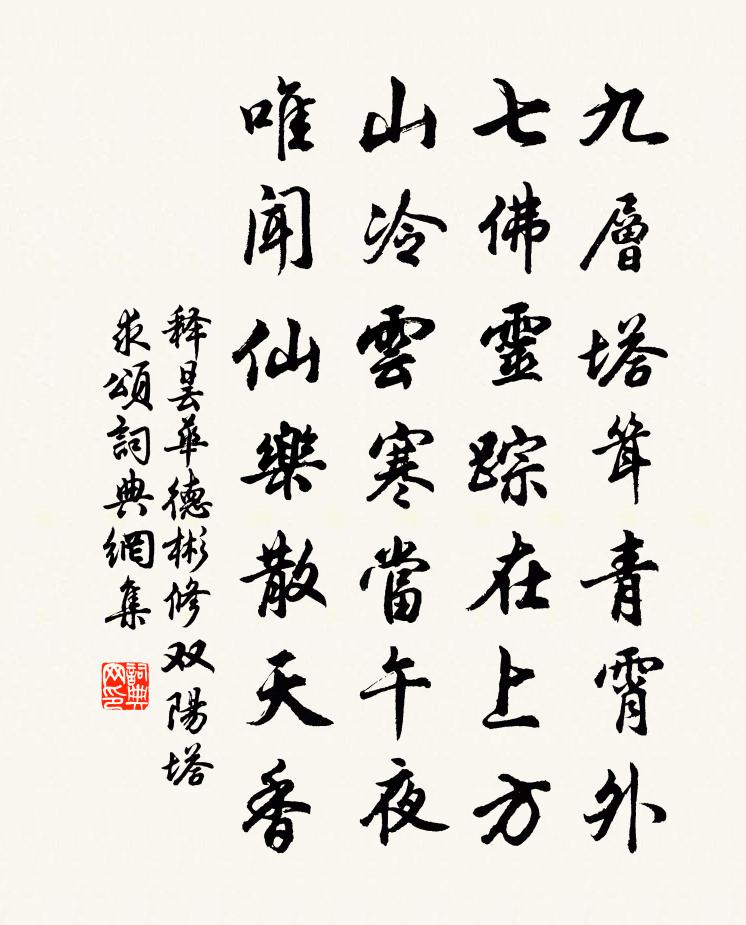 九層塔聳青霄外
七佛靈踪在上方
山冷雲寒當午夜
唯聞仙樂散天香
釋曇華德彬修双陽塔
求頌詞典網集
詞典网印